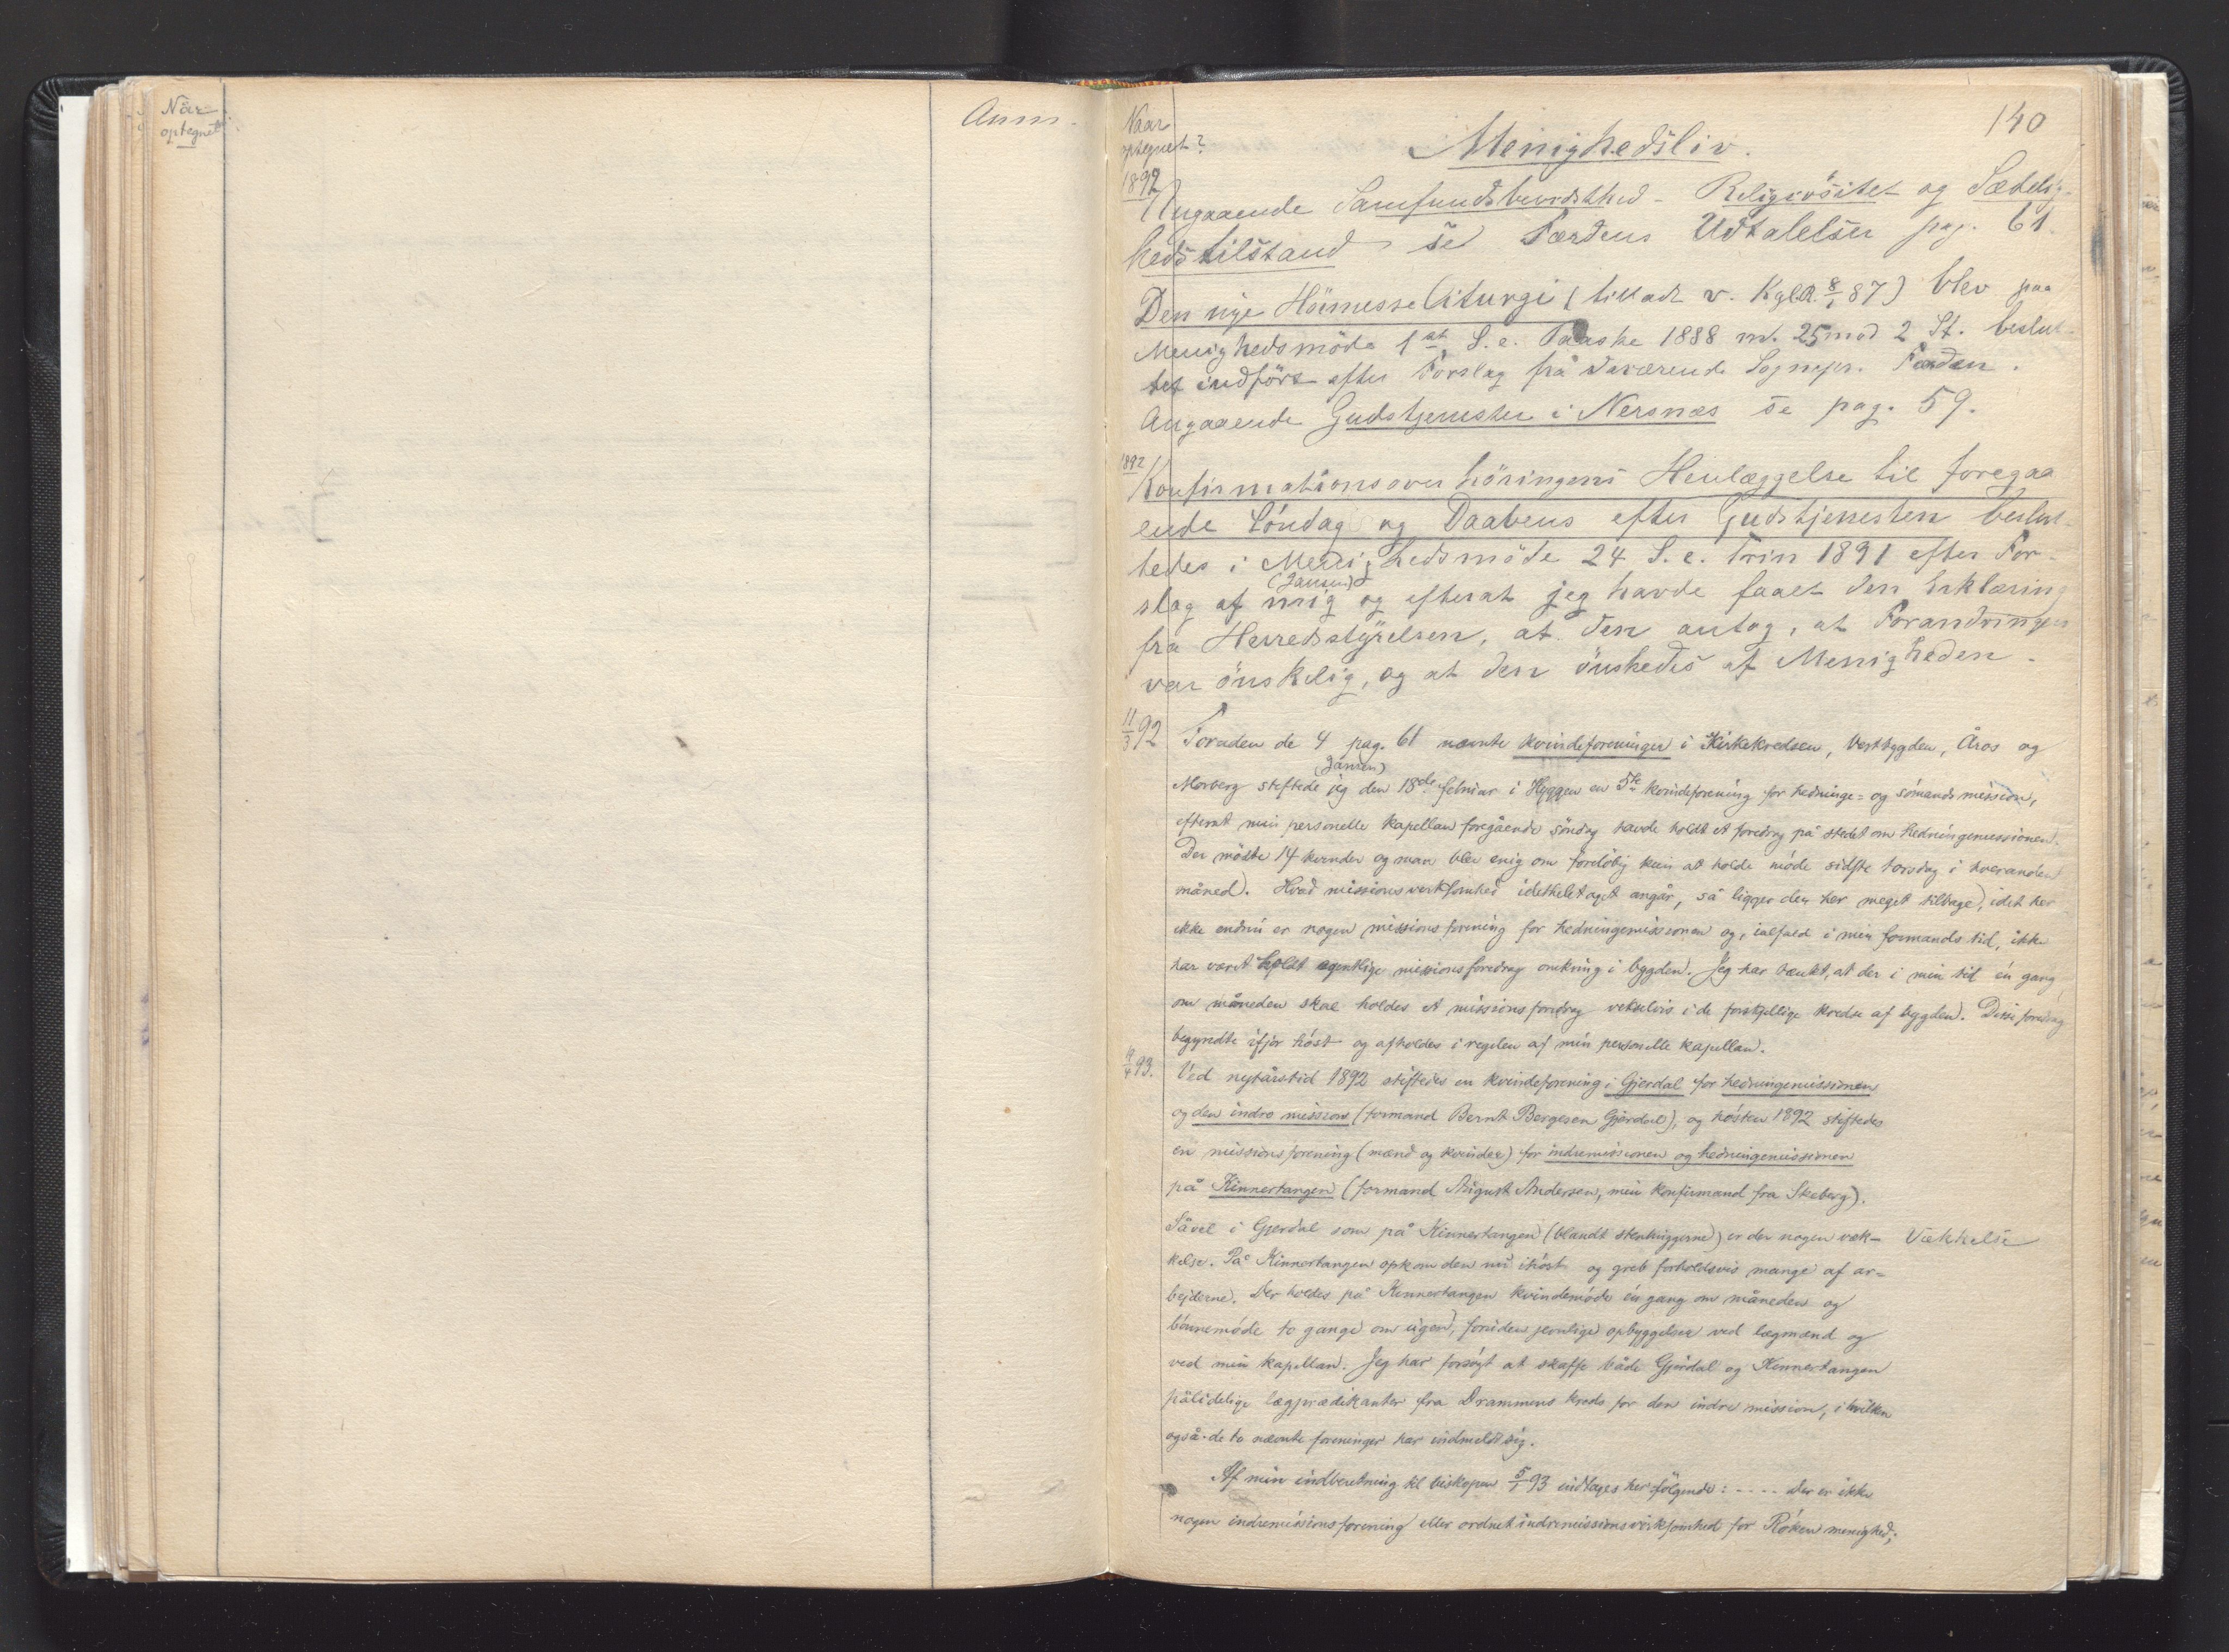 Når
optegnet
Anm.
Naar
optegnet?
140
Menighedsliv.
1892
Angaaende Samfundsbevidsthed - Religiøsitet og Sædelig-
hedstilstand se Færdens Udtalelser pag. 61.
Den nye Höimesse Liturgi (tilladt v. Kgl. R. 8/1 87) blev paa
Menighedsmöde 1st S. e. Paaske 1888 m. 25 mod 2 St. beslut-
tet indfört efter Forslag frå daværende Sognepr. Færden.
Angaaende Gudstjenester i Nersnæs se pag. 59.
1892
Konfirmationsoverhöringens Henlæggelse til foregaa
ende Söndag og Daabens efter Gudstjenesten beslut-
tedes i Menighedsmöde 24 S. e. Trin 1891 efter For-
(Jansen)
slag af mig og efterat jeg havde faaet den Erklæring
fra Herredsstyrelsen, at den antog, at Forandringen
var önskelig, og at den önskedes af Menigheden.
11/3 92
Foruden de 4 pag. 61 nævnte kvindeforeninger i Kirkekredsen, Vestbygden, Åros og
(Jansen)
Morberg stiftede jeg den 18de februar i Hyggen en 5te kvindeforening for hedninge= og sömandsmission,
efterat min personelle kapellan foregående söndag havde holdt et foredrag på stedet om Hedningemissionen.
Der mödte 14 kvinder og man blev enig om foreløbig kun at holde möde sidste torsdag i hveranden
måned. Hvad missionsvirksomhed idetheletaget angår, så ligger den her meget tilbage, idet her
ikke endnu er nogen missionsforening for hedningemissionen og, ialfald i min formands tid, ikke
har været holdt egentlige missionsforedrag omkring i bygden. Jeg har tænkt, at der i min tid én gang
om måneden skal holdes et missionsforedrag vekselvis i de forskjellige kredse af bygden. Disse foredrag
begyndte ifjor höst og afholdes i regelen af min personelle kapellan.
4 93.
Ved nytårstid 1892 stiftedes en kvindeforening i Gjerdal for hedningemissionen
og den indre mission (formand Bernt Borgesen Gjerdal), og hösten 1892 stiftedes
en missionsforening (mænd og kvinder) for indremissionen og hedningemissionen
på Kinnertangen (formand August Andersen, min konfirmand fra Skeberg).
Såvel i Gjerdal som på Kinnertangen (blandt stenhuggerne) er der nogen væk-
Vækkelse
kelse. På Kinnertangen opkom den nu ihöst og greb forholdsvis mange af ar=
bejderne. Der holdes på Kinnertangen kvindemöde én gang om måneden og
bönnemöde to gange om ugen, foruden jevnlige opbyggelser ved lægmænd og
ved min kapellan. Jeg har forsögt at skaffe både Gjerdal og Kinnertangen
pålidelige lægprædikanter fra Drammens kreds for den indre mission, i hvilken
også de to nævnte foreninger har indmeldt sig.
Af min indberetning til biskopen 5/1 93 indtages her følgende: - - - - Der er ikke
nogen indremissionsforening eller ordnet indremissionsvirksomhed for Röken menighed;